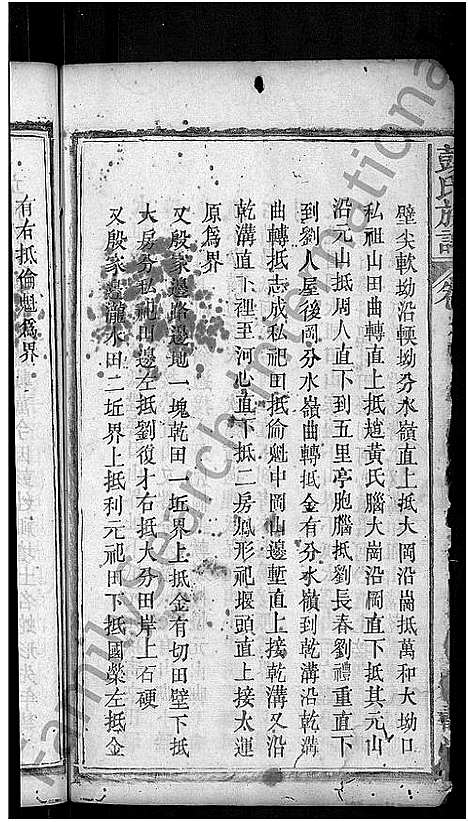 彭氏族譜
壁尖軟坳沿輭坳分水嶺直上抵大岡沿崗抵萬和大坳口
私祖山田曲轉直上抵趙黃氏腦大崗沿岡直下抵其元山
沿元山抵周人直下到五里亭胞腦抵劉長春劉禮重直下
到劉人屋後岡分水嶺曲轉抵金有分水嶺到乾溝沿乾溝
曲轉抵志成私祀田抵倫魁中岡山邊塹直上接乾溝又沿
乾溝直下裡至河心直下抵二房鳳形祀堰頭直上接太運
原爲界
又殷家邊路邊地一塊乾田一坵界上抵金有切田壁下抵
大房分私祀田邊左抵劉復才右抵大分田岸上石硬
又殷家壠水田二坵界上抵利元祀田下抵國榮左抵金
有右抵倫魁爲界
familysearch international